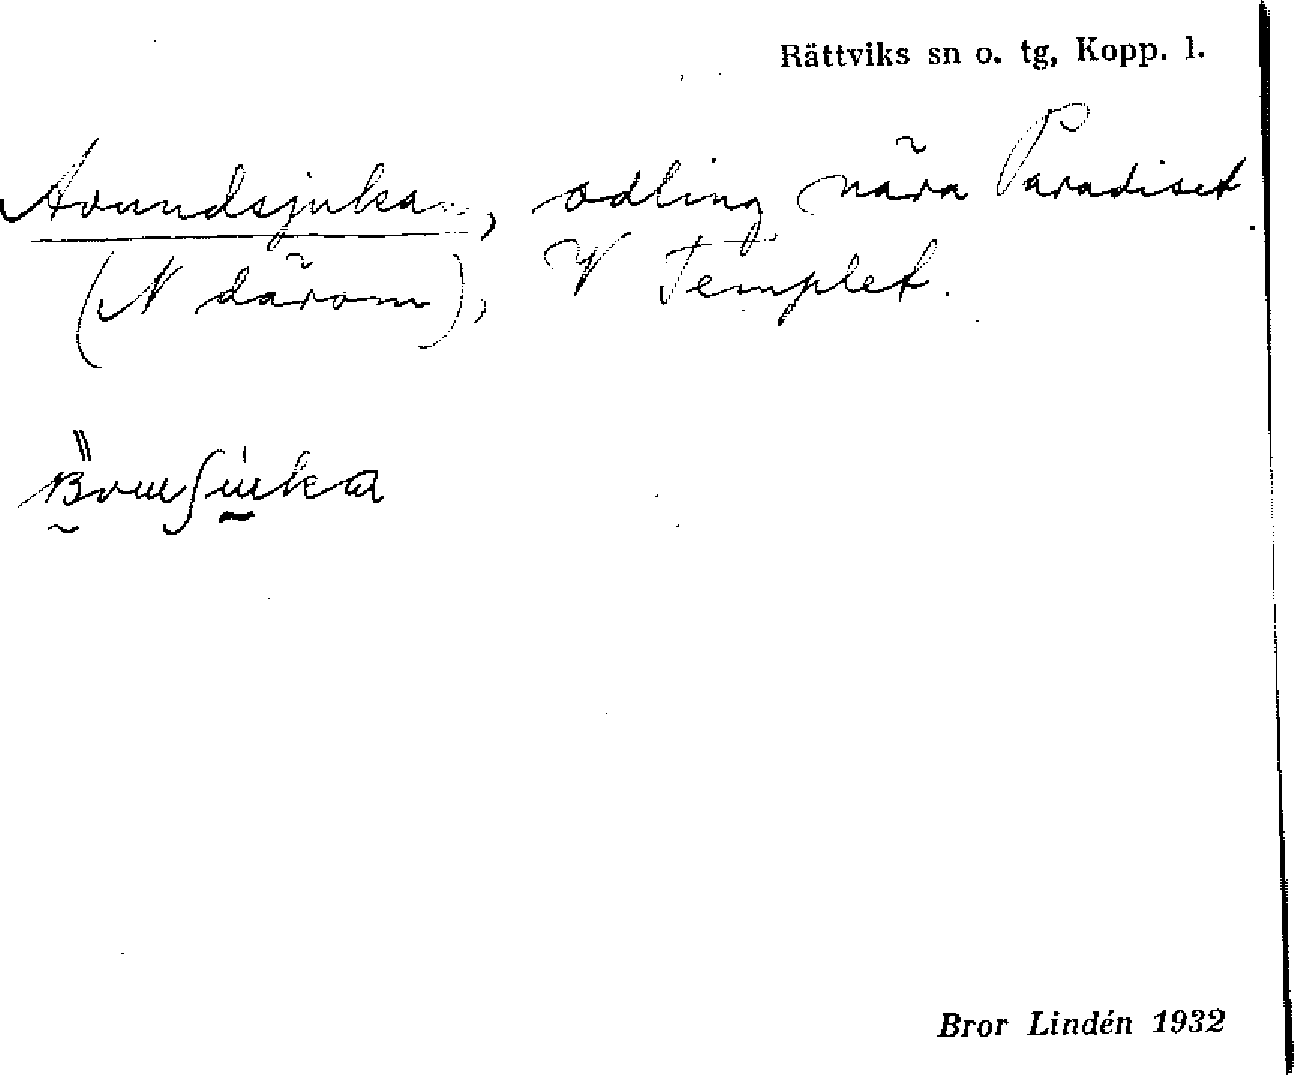 Rättviks sn o. tg, Kopp. l.
Avundsjukan, odling nära Paradiset
(N därom), V Templet.
Bror Lindén 1932